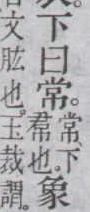 下曰常。常、下
帬也。象
文肱也。玉裁謂。